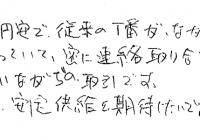 円安で、従来の丁番が、なか
っていて、密に連絡取り合
いながらの取引です。
安定供給を期待したいで